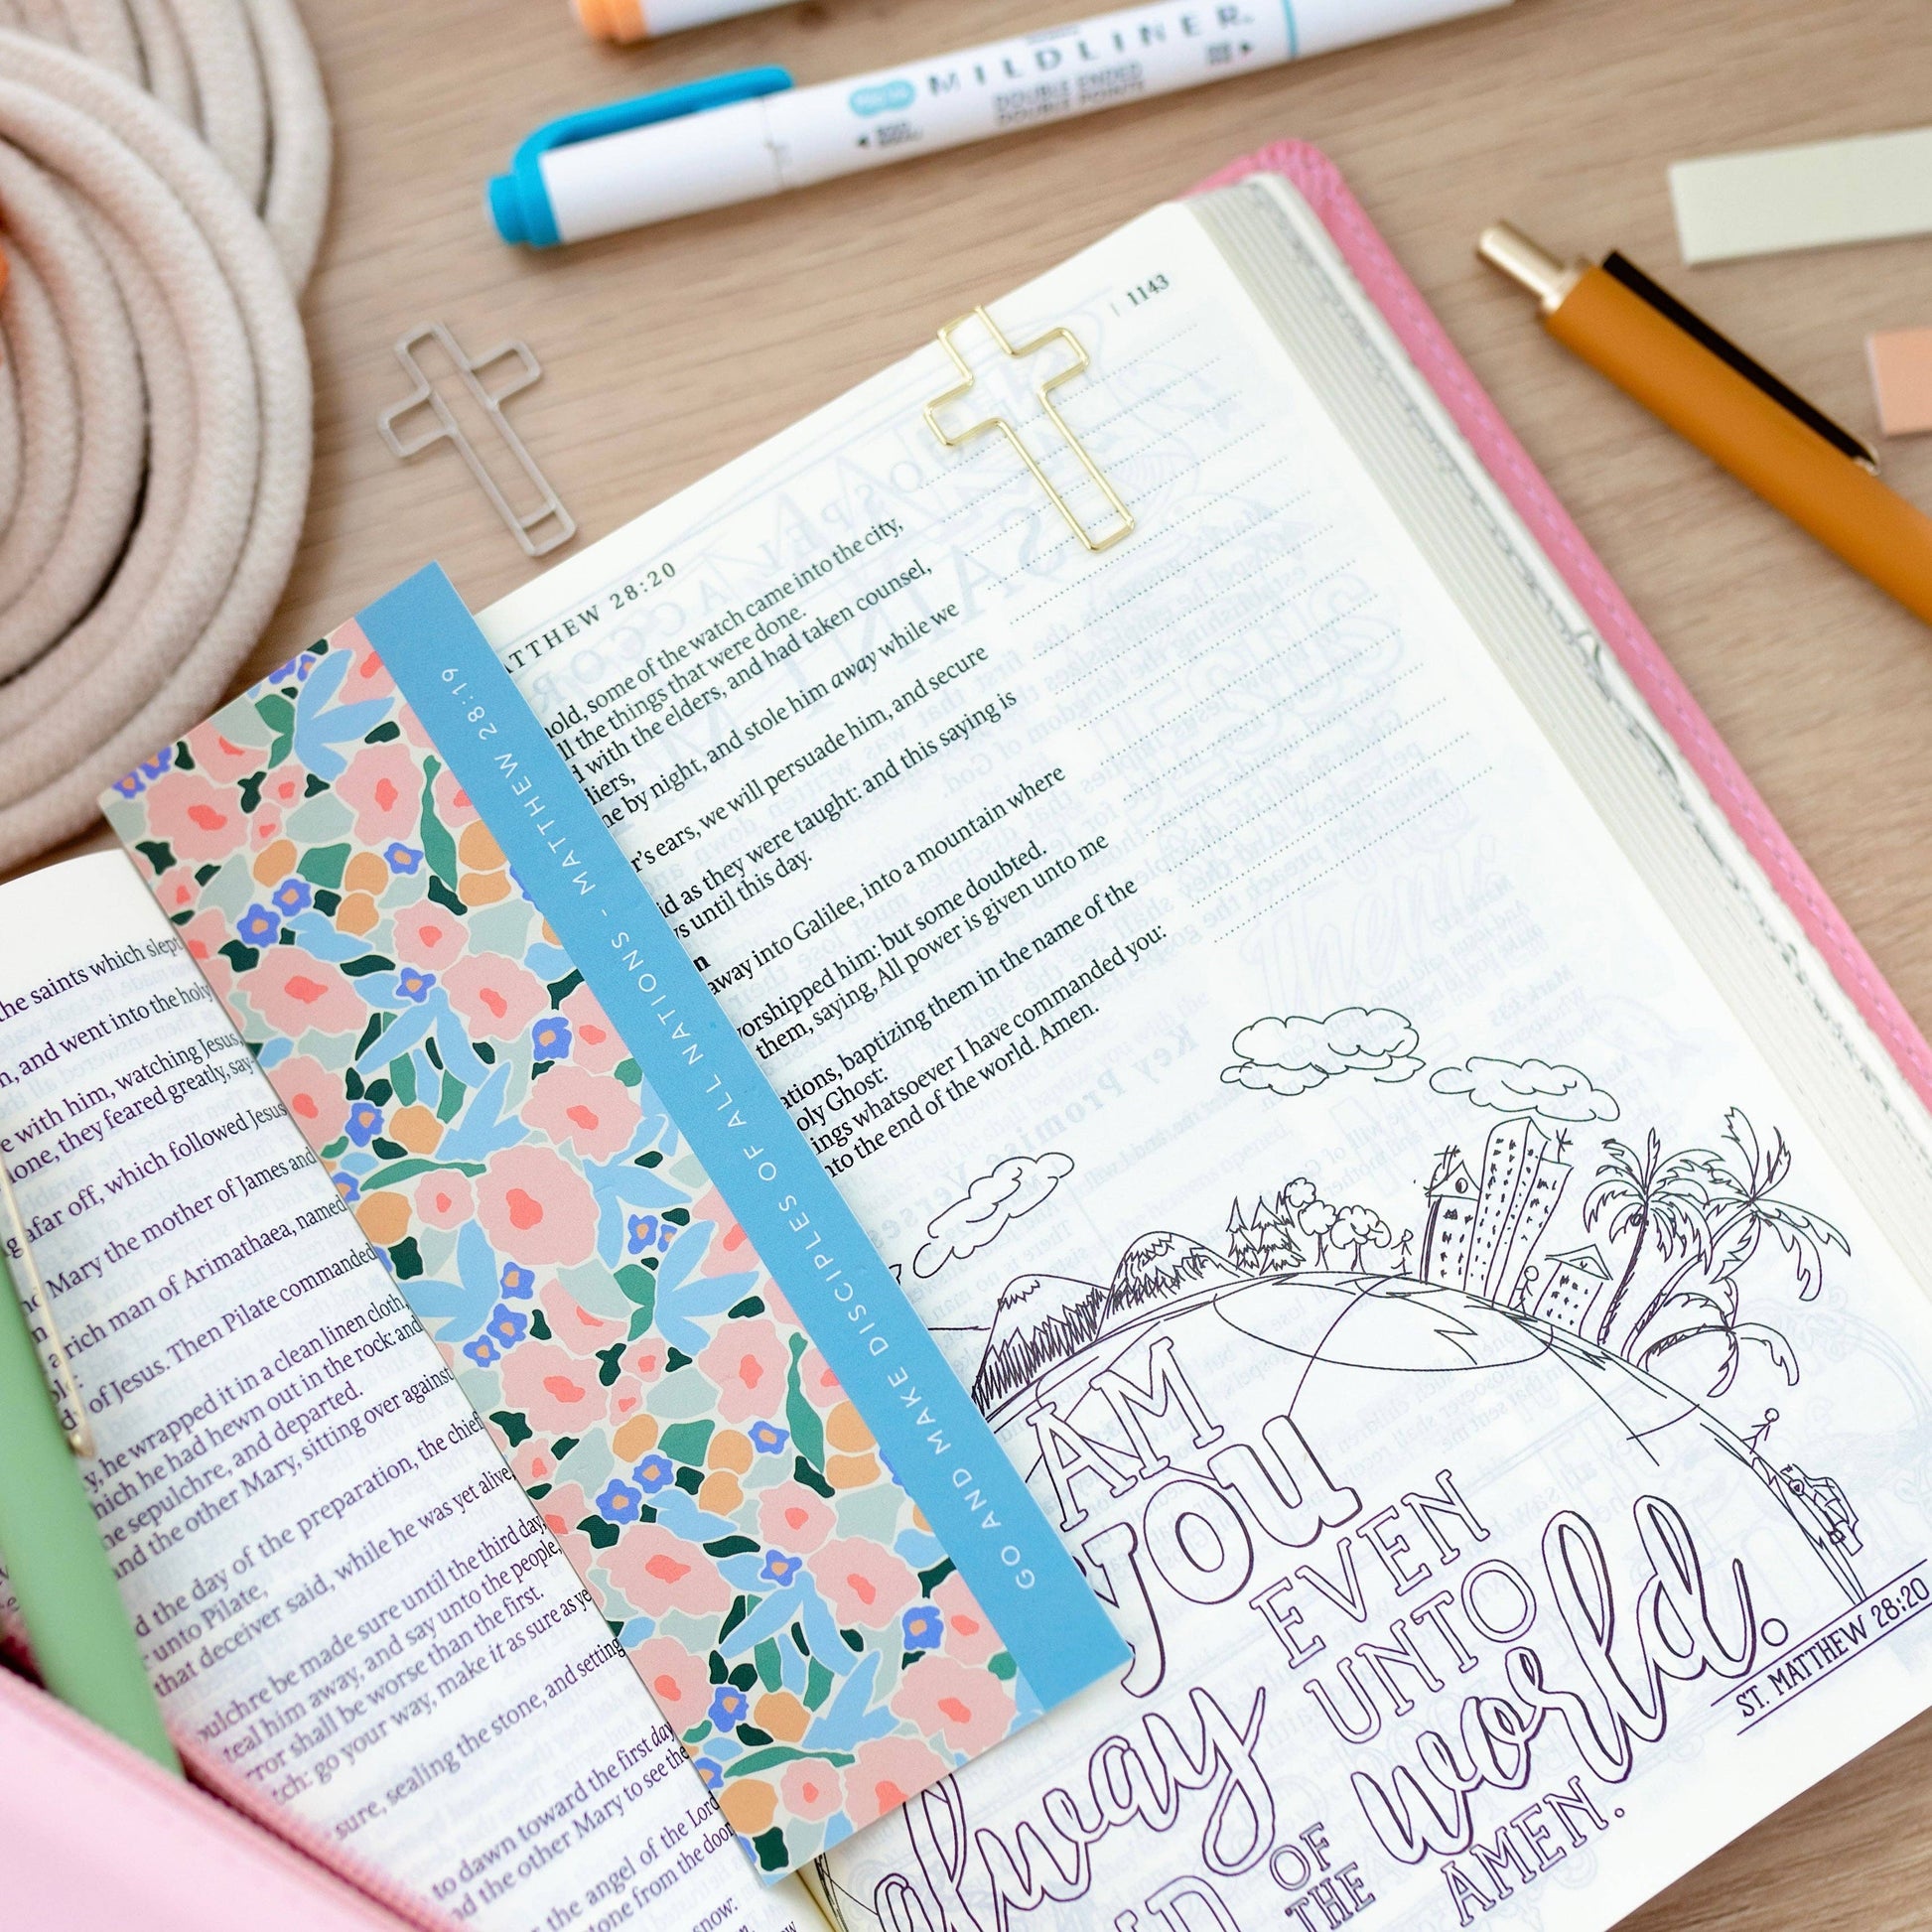 MILDLINER.
DOUBLE ENDED
DOUBLE POINTS
1143
ATTHEW 28:20
old, some of the watch came into the city,
ll the things that were done.
d with the elders, and had taken counsel,
liers,
me by night, and stole him away while we
r's ears, we will persuade him, and secure
id as they were taught: and this saying is
ys until this day.
n
away into Galilee, into a mountain where
worshipped him: but some doubted.
them, saying, All power is given unto me
ations, baptizing them in the name of the
oly Ghost:
ings whatsoever I have commanded you:
nto the end of the world. Amen.
GO AND MAKE DISCIPLES OF ALL NATIONS - MATTHEW 28:19
he saints which slept
n, and went into the holy
e with him, watching Jesus,
done, they feared greatly, say-
g afar off, which followed Jesus
Mary the mother of James and
a rich man of Arimathaea, named
of Jesus. Then Pilate commanded
y, he wrapped it in a clean linen cloth,
hich he had hewn out in the rock: and
he sepulchre, and departed.
and the other Mary, sitting over against
d the day of the preparation, the chief
unto Pilate,
that deceiver said, while he was yet alive,
pulchre be made sure until the third day,
teal him away, and say unto the people,
rror shall be worse than the first.
tch: go your way, make it as sure as ye
sure, sealing the stone, and setting
to dawn toward the first day
nd the other Mary to see the
the angel of the Lord
stone from the door
snow:
AM
YOU
always
EVEN
UNTO
OF
THE
world.
AMEN.
ST. MATTHEW 28:20